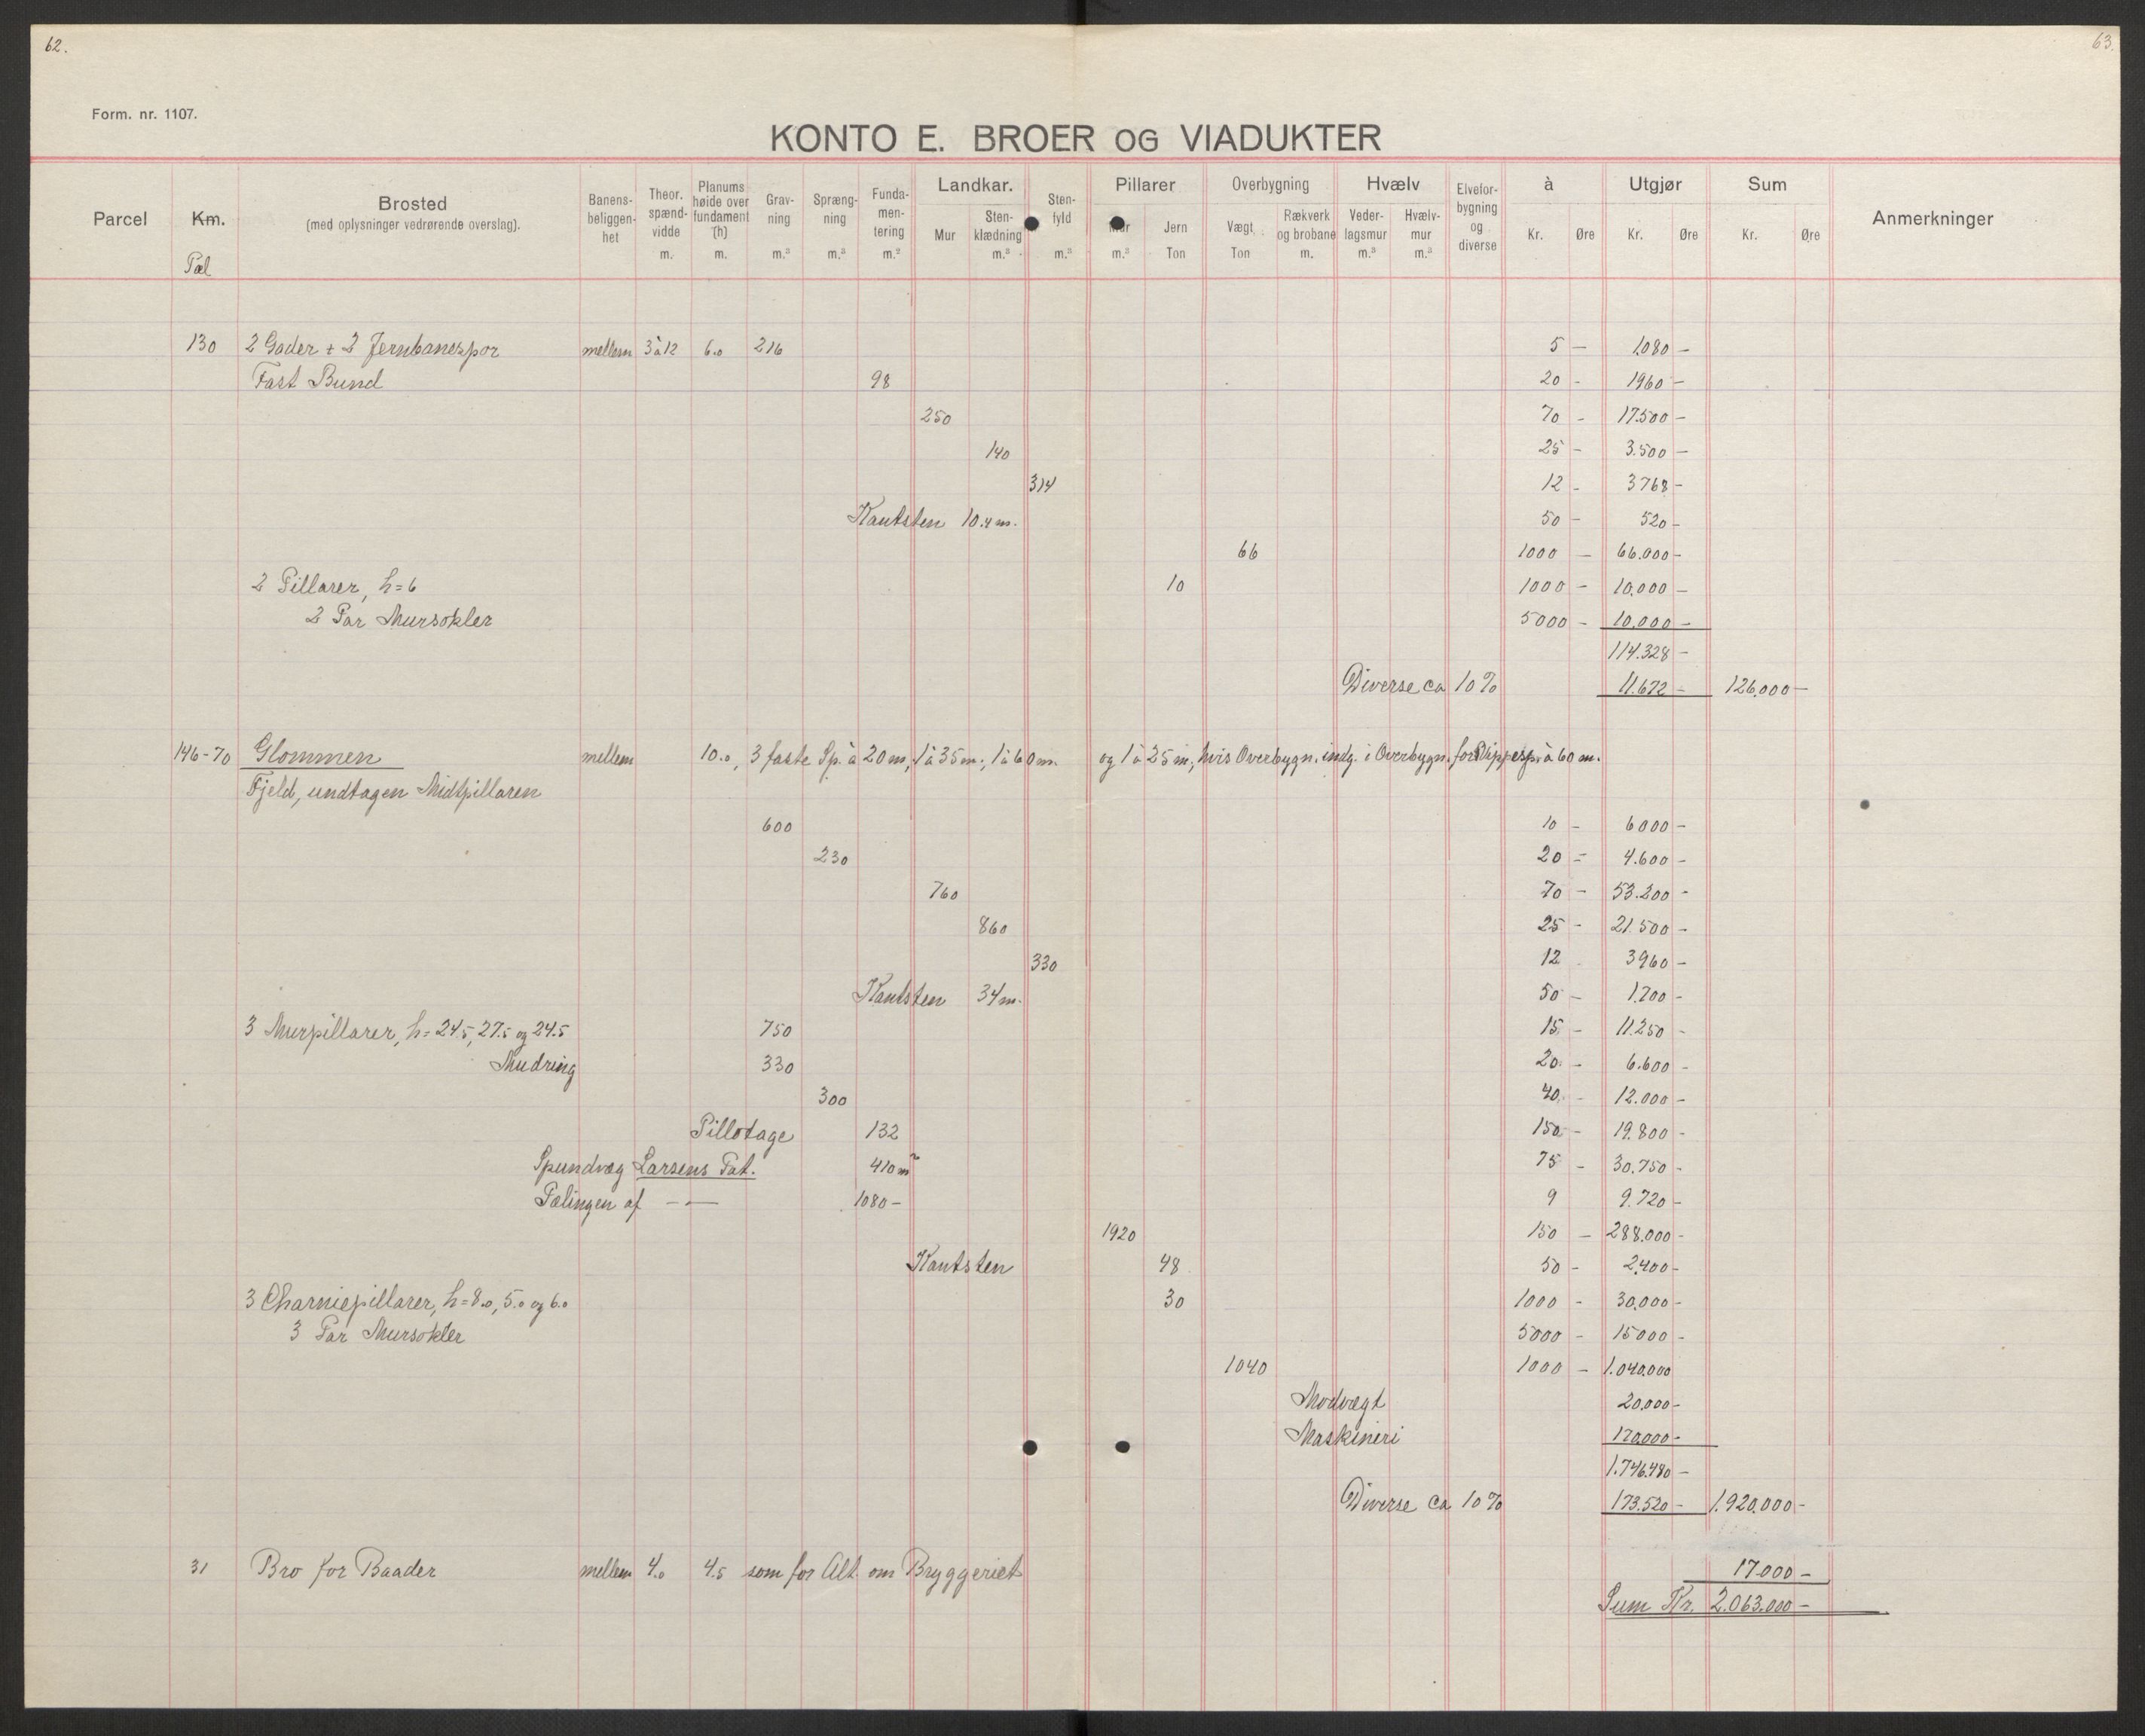 62.
63.
Form. nr. 1107.
KONTO E. BROER OG VIADUKTER
Parcel Km. Brosted (med oplysninger vedrørende overslag). Banens-beliggen-het Theor. spænd-vidde m. Planums høide over fundament (h) m. Grav-ning m.³ Spræng-ning m.³ Funda-men-tering m.² Landkar. Mur Sten-klædning m.³ Sten-fyld m.³ Pillarer Mur m.³ Jern Ton Overbygning Vægt Ton Rækverk og brobane m. Hvælv Veder-lagsmur m.³ Hvælv-mur m.³ Elvefor-bygning og diverse à Kr. Øre Utgjør Kr. Øre Sum Kr. Øre Anmerkninger
Pæl
130 2 Gader + 2 Jernbanespor mellem 3 à 12 6.0 216 5 — 1.080 —
Fast Bund 98 20 - 1960 —
250 70 - 17.500 —
140 25 - 3.500 —
314 12 - 3768 —
Kantsten 10.4 m. 50 — 520 —
66 1000 — 66.000 —
2 Pillarer, h = 6 10 1000 — 10.000 —
2 Par Mursokler 5000 - 10.000 —
114.328 —
Diverse ca 10 % 11.672 — 126.000 —
146-70 Glommen mellem 10.0, 3 faste Sp. à 20 m, 1 à 35 m., 1 à 60 m. og 1 à 25 m, hvis Overbygn. indg. i Overbygn. for Klippesp. à 60 m.
Fjeld, undtagen Midtpillaren
600 10 - 6000 —
230 20 - 4.600 —
760 70 - 53.200 -
860 25 - 21.500 —
330 12 3960 —
Kantsten 34 m. 50 — 1.700 -
3 Murpillarer, h = 24.5, 27.5 og 24.5 750 15 - 11.250 -
Mudring 330 20 - 6.600 -
300 40 - 12.000 —
Pillotage 132 150 - 19.800 -
Spundvæg Larsens Pat. 410 m² 75 - 30.750 -
Pælingen af — - — 1080 - 9 9.720 —
1920 150 — 288.000 -
Kantsten 48 50 - 2.400 -
3 Charniepillarer, h = 8.0, 5.0 og 6.0 30 1000 - 30.000 -
3 Par Mursokler 5000 - 15000 -
1040 1000 — 1.040.000
Modvægt 20.000 -
Maskineri 120.000 -
1.746.480 —
Diverse ca 10 % 173.520 — 1.920.000 -
31 Bro for Baader mellem 4.0 4.5 som for Alt. om Bryggeriet 17.000 —
Sum Kr. 2.063.000 —